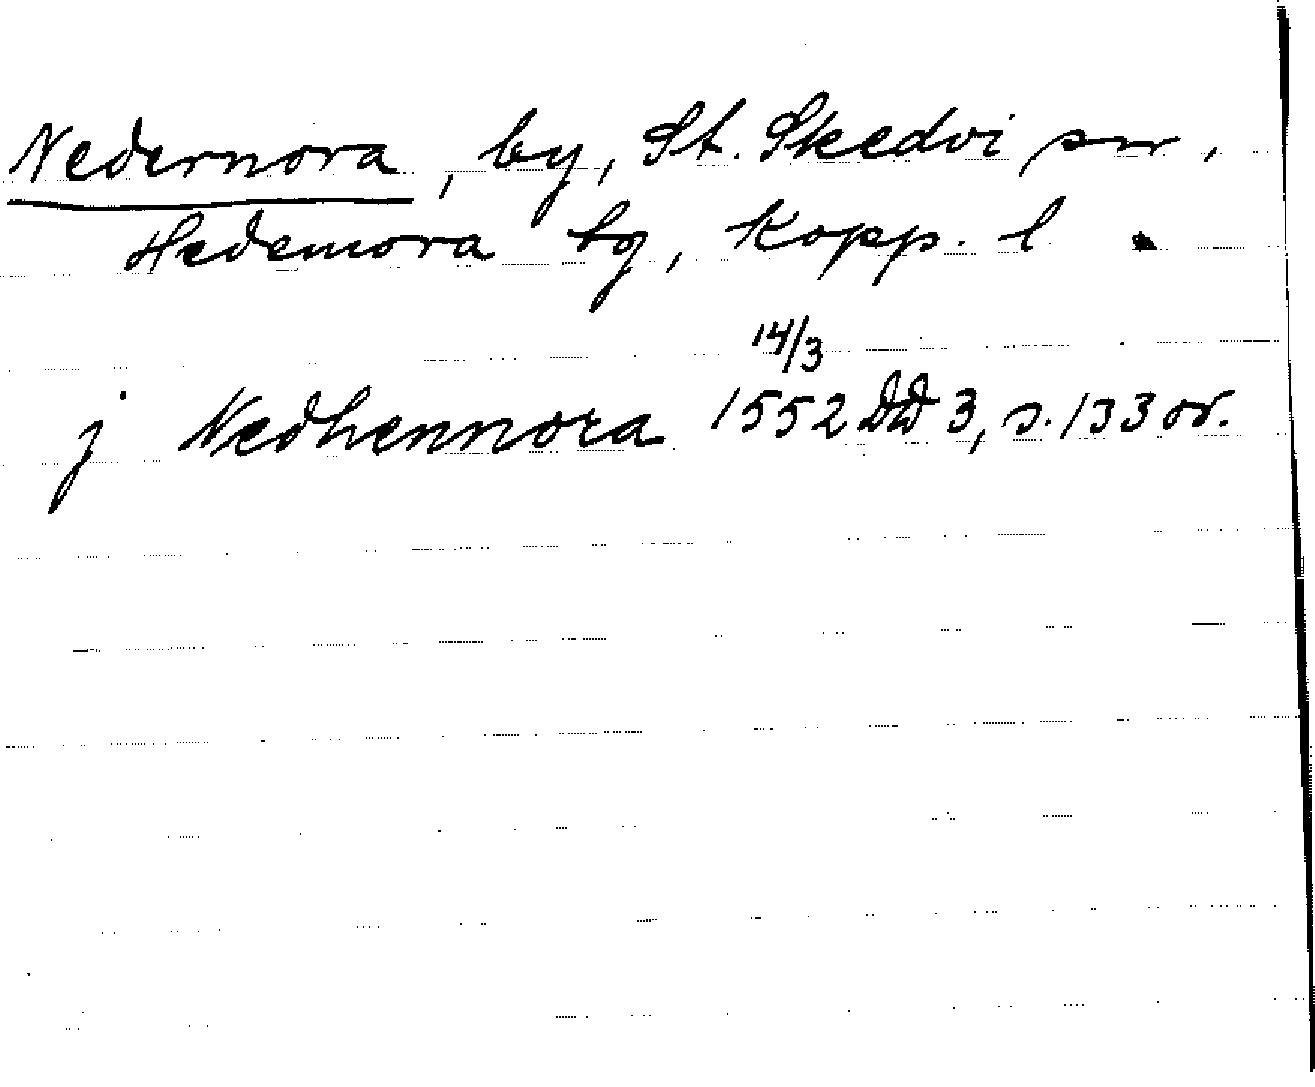 Nedernora, by, St. Skedvi sn,
Hedemora tg, Kopp. l.
14/3
j Nedhennora 1552 DD 3, s. 133 or.